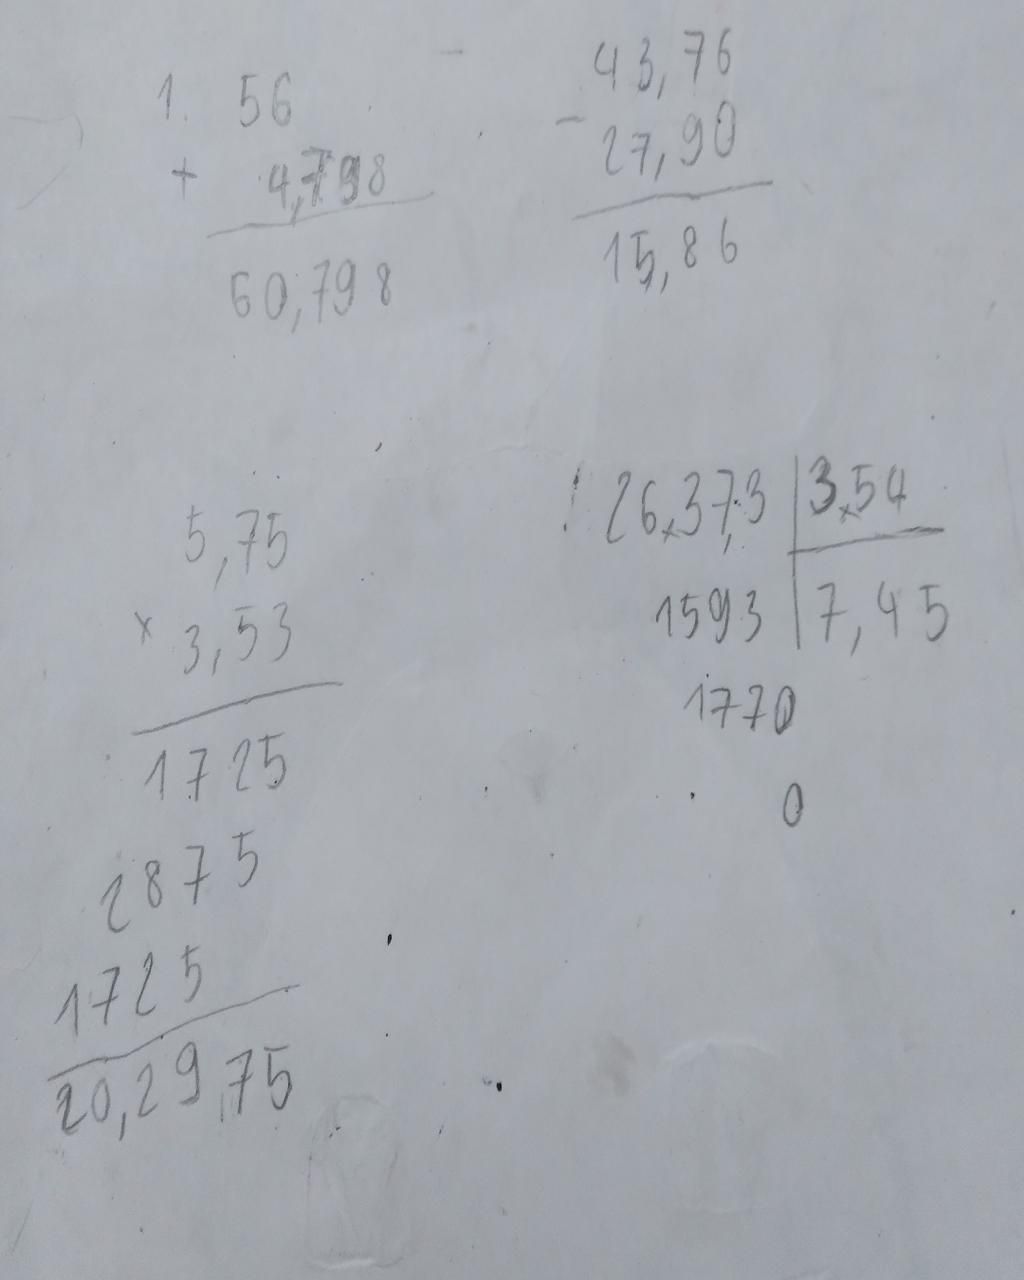 1. 56
+ 4,798
60,798
43,76
- 27,90
15,86
5,75
x 3,53
1725
2875
1725
20,2975
26,37,3 | 3,54
1593 | 7,45
1770
0